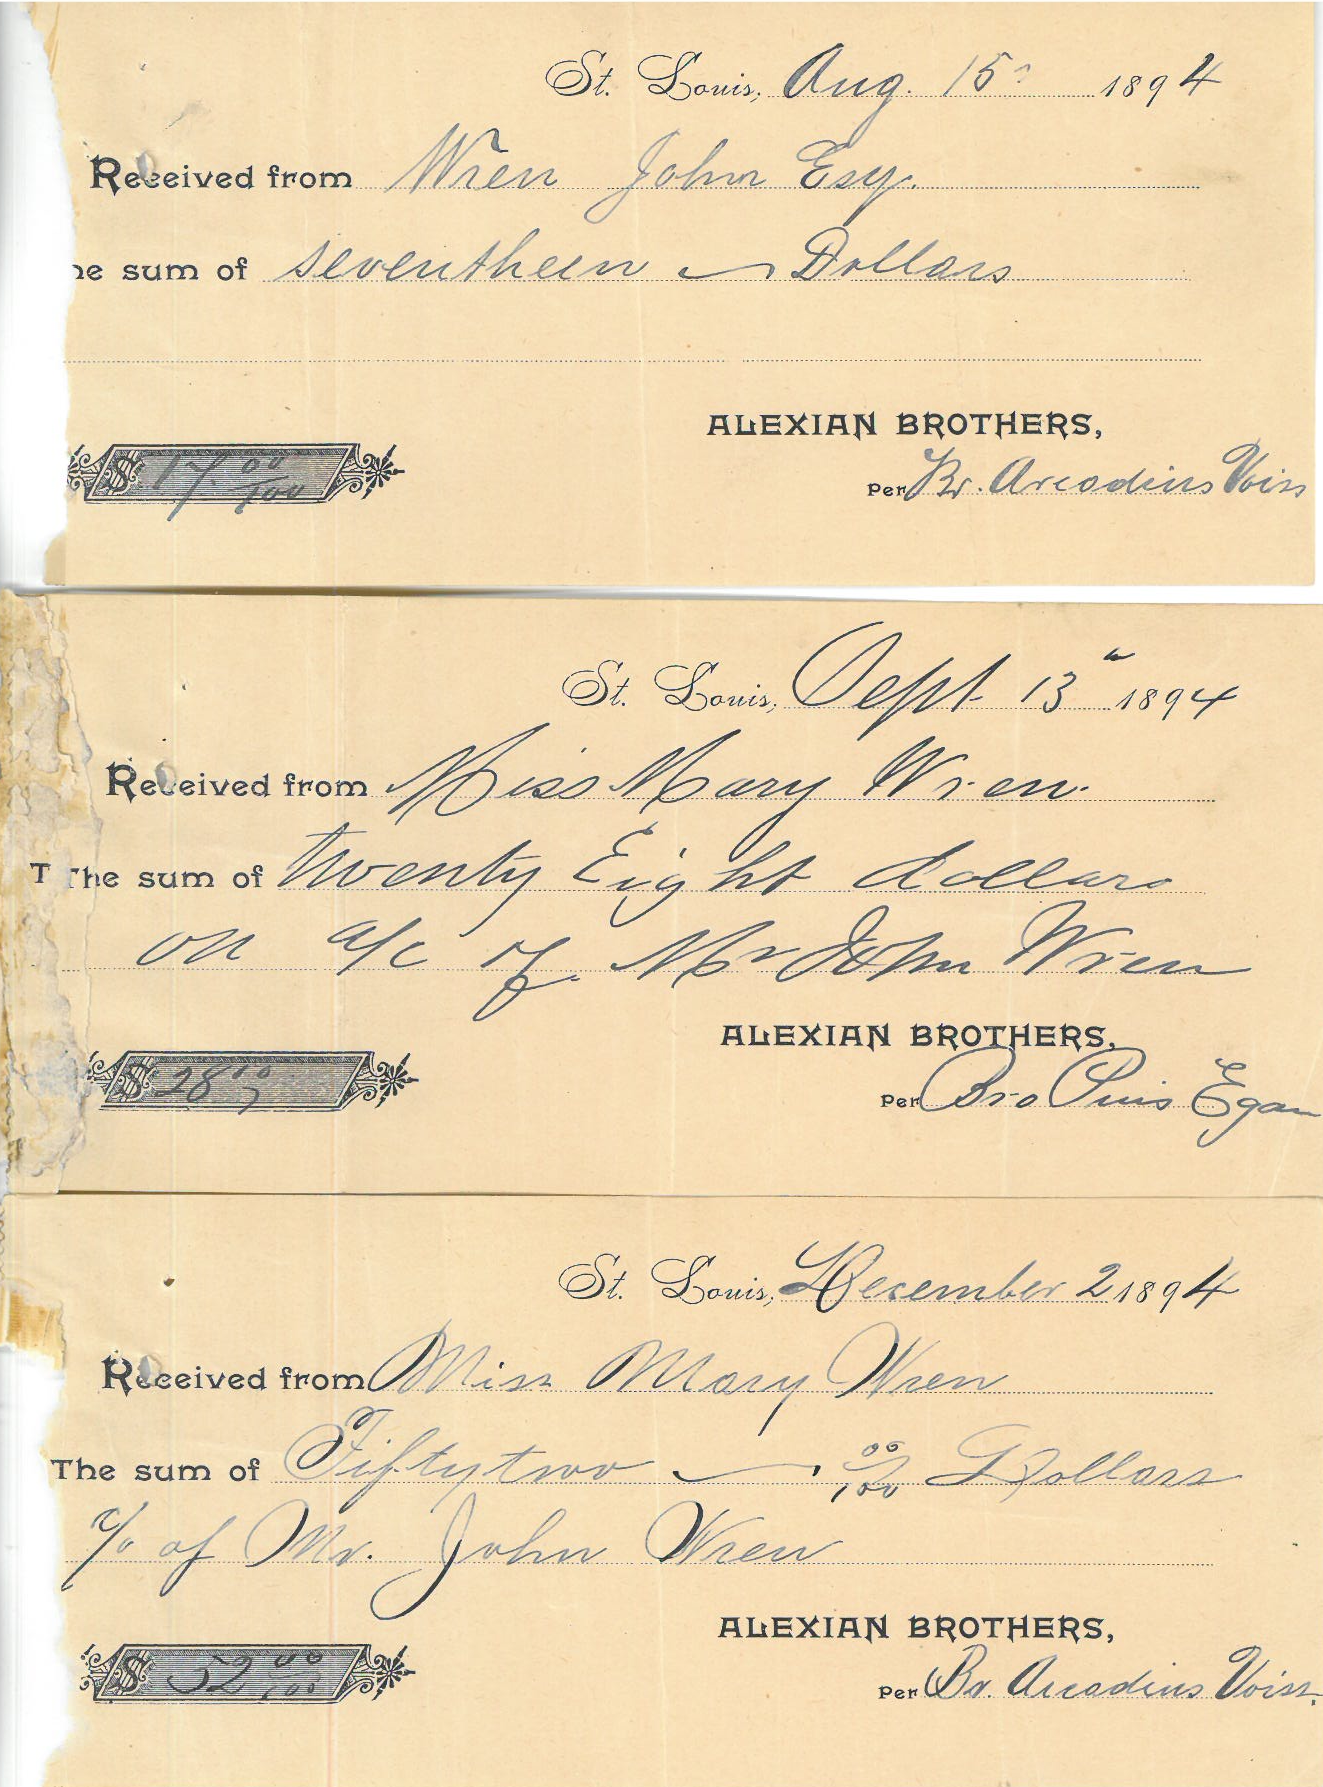 St. Louis, Aug. 15 1894
Received from Wren John Esq.
he sum of seventheen Dollars
$ 17 00/100
ALEXIAN BROTHERS,
Per Br. Arcadius Voiss
St. Louis, Sept 13 1894
Received from Miss Mary Wren.
T The sum of twenty Eight dollars
on a/c of Mr John Wren
$ 28
ALEXIAN BROTHERS,
Per Bro Pius Egan
St. Louis, December 2 1894
Received from Miss Mary Wren
The sum of Fiftytwo 00/100 Dollars
of Mr. John Wren
$ 52 00/100
ALEXIAN BROTHERS,
Per Br. Arcadius Voiss.